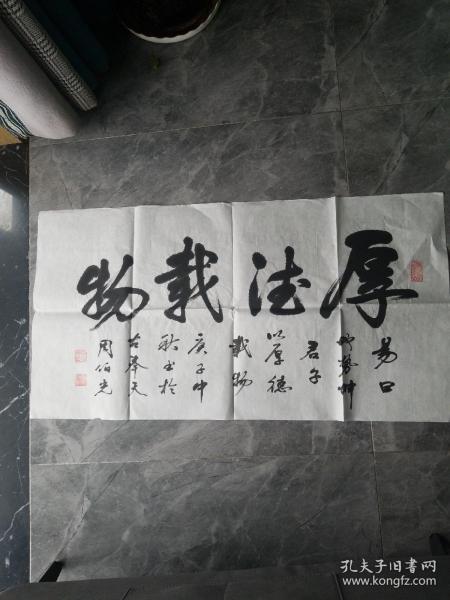 厚德载物
易曰
地势坤
君子
以厚德
载物
庚子中
秋书于
古奉天
周伯光
孔夫子旧书网
www.kongfz.com